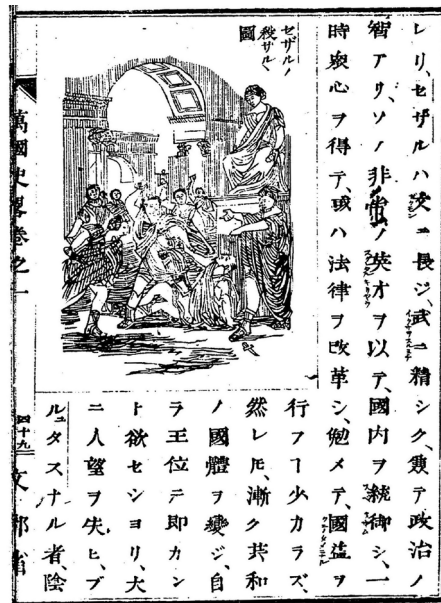 レリ、セザルハ文ニ長ジ、武ニ精シク、兼テ政治ノ
智アリ、ソノ非常ノ英才ヲ以テ、國内ヲ統御シ、一
時衆心ヲ得テ、或ハ法律ヲ改革シ、勉メテ、國益ヲ
行フヿ少カラズ、
然レ𪜈、漸ク共和
ノ國體ヲ變ジ、自
ラ王位ニ即カン
ト欲セシヨリ、大
ニ人望ヲ失ヒ、ブ
ルュタスナル者、陰
セザルノ
殺サルヽ
圖
萬國史畧卷之一
四十九
文部省